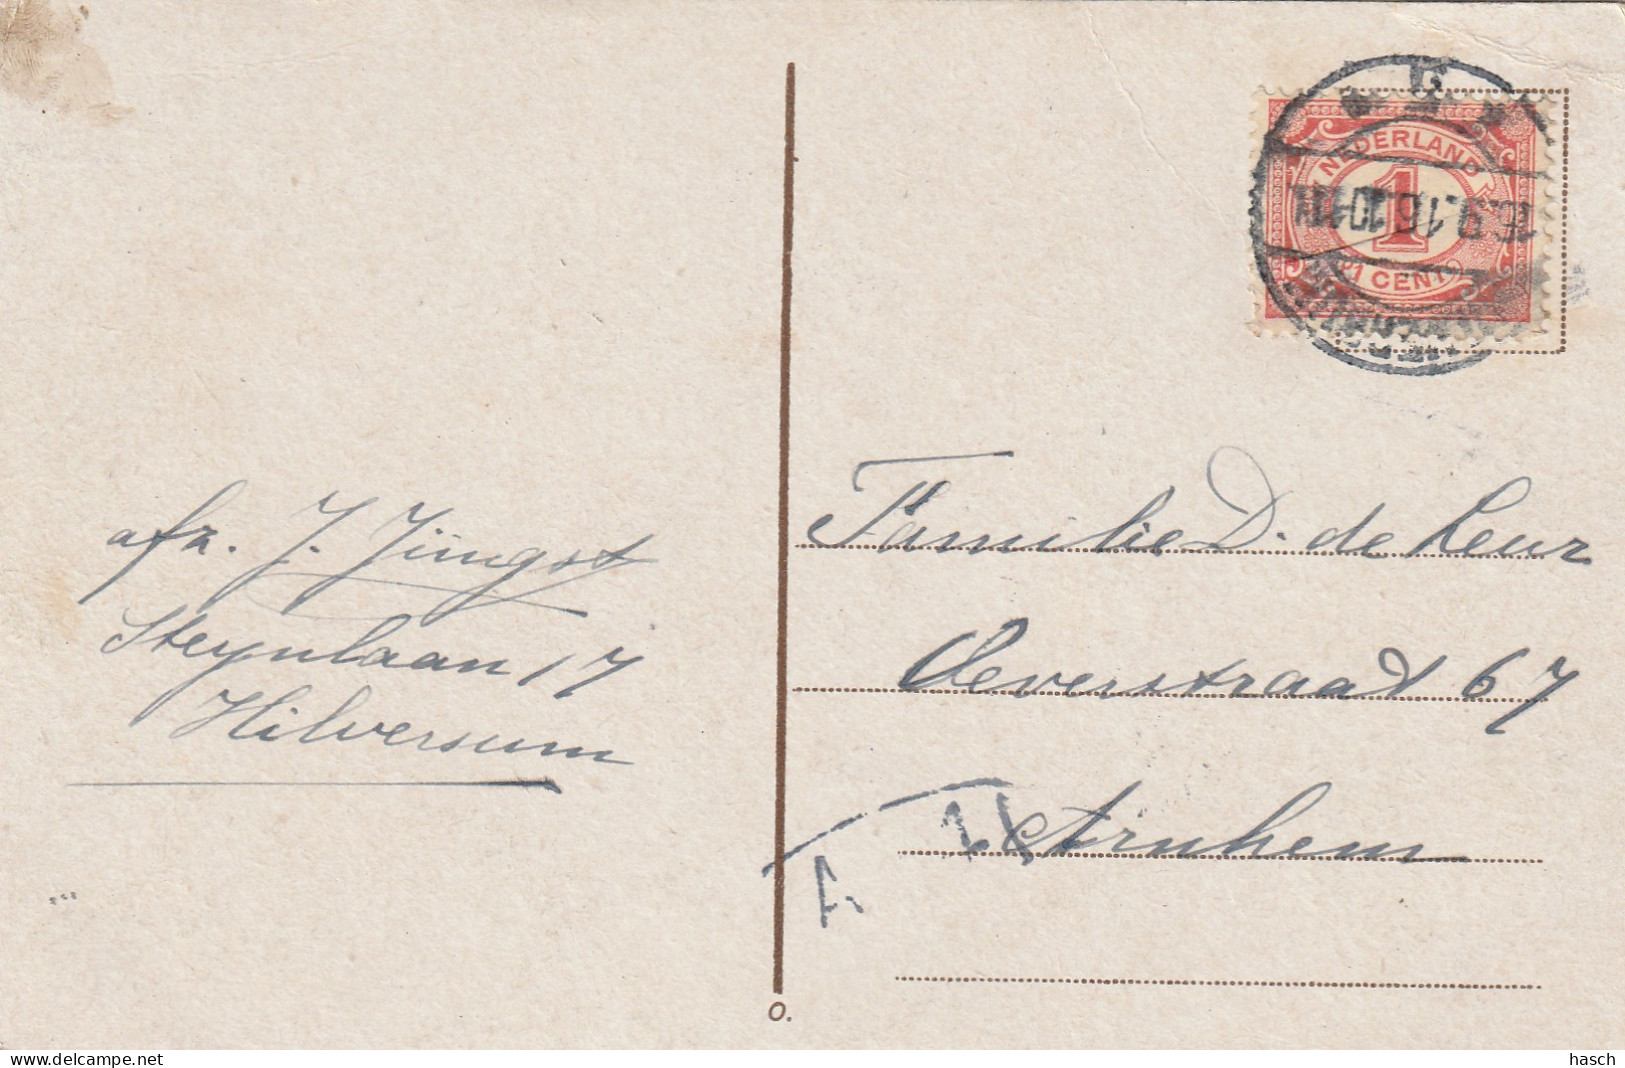 afz. J. Jüngst
Steynlaan 17
Hilversum
NEDERLAND
1
1 CENT
16.9.16.10-11N
Familie D. de Leur
Oeverstraat 67
Arnhem
O.
delcampe.net
hasch